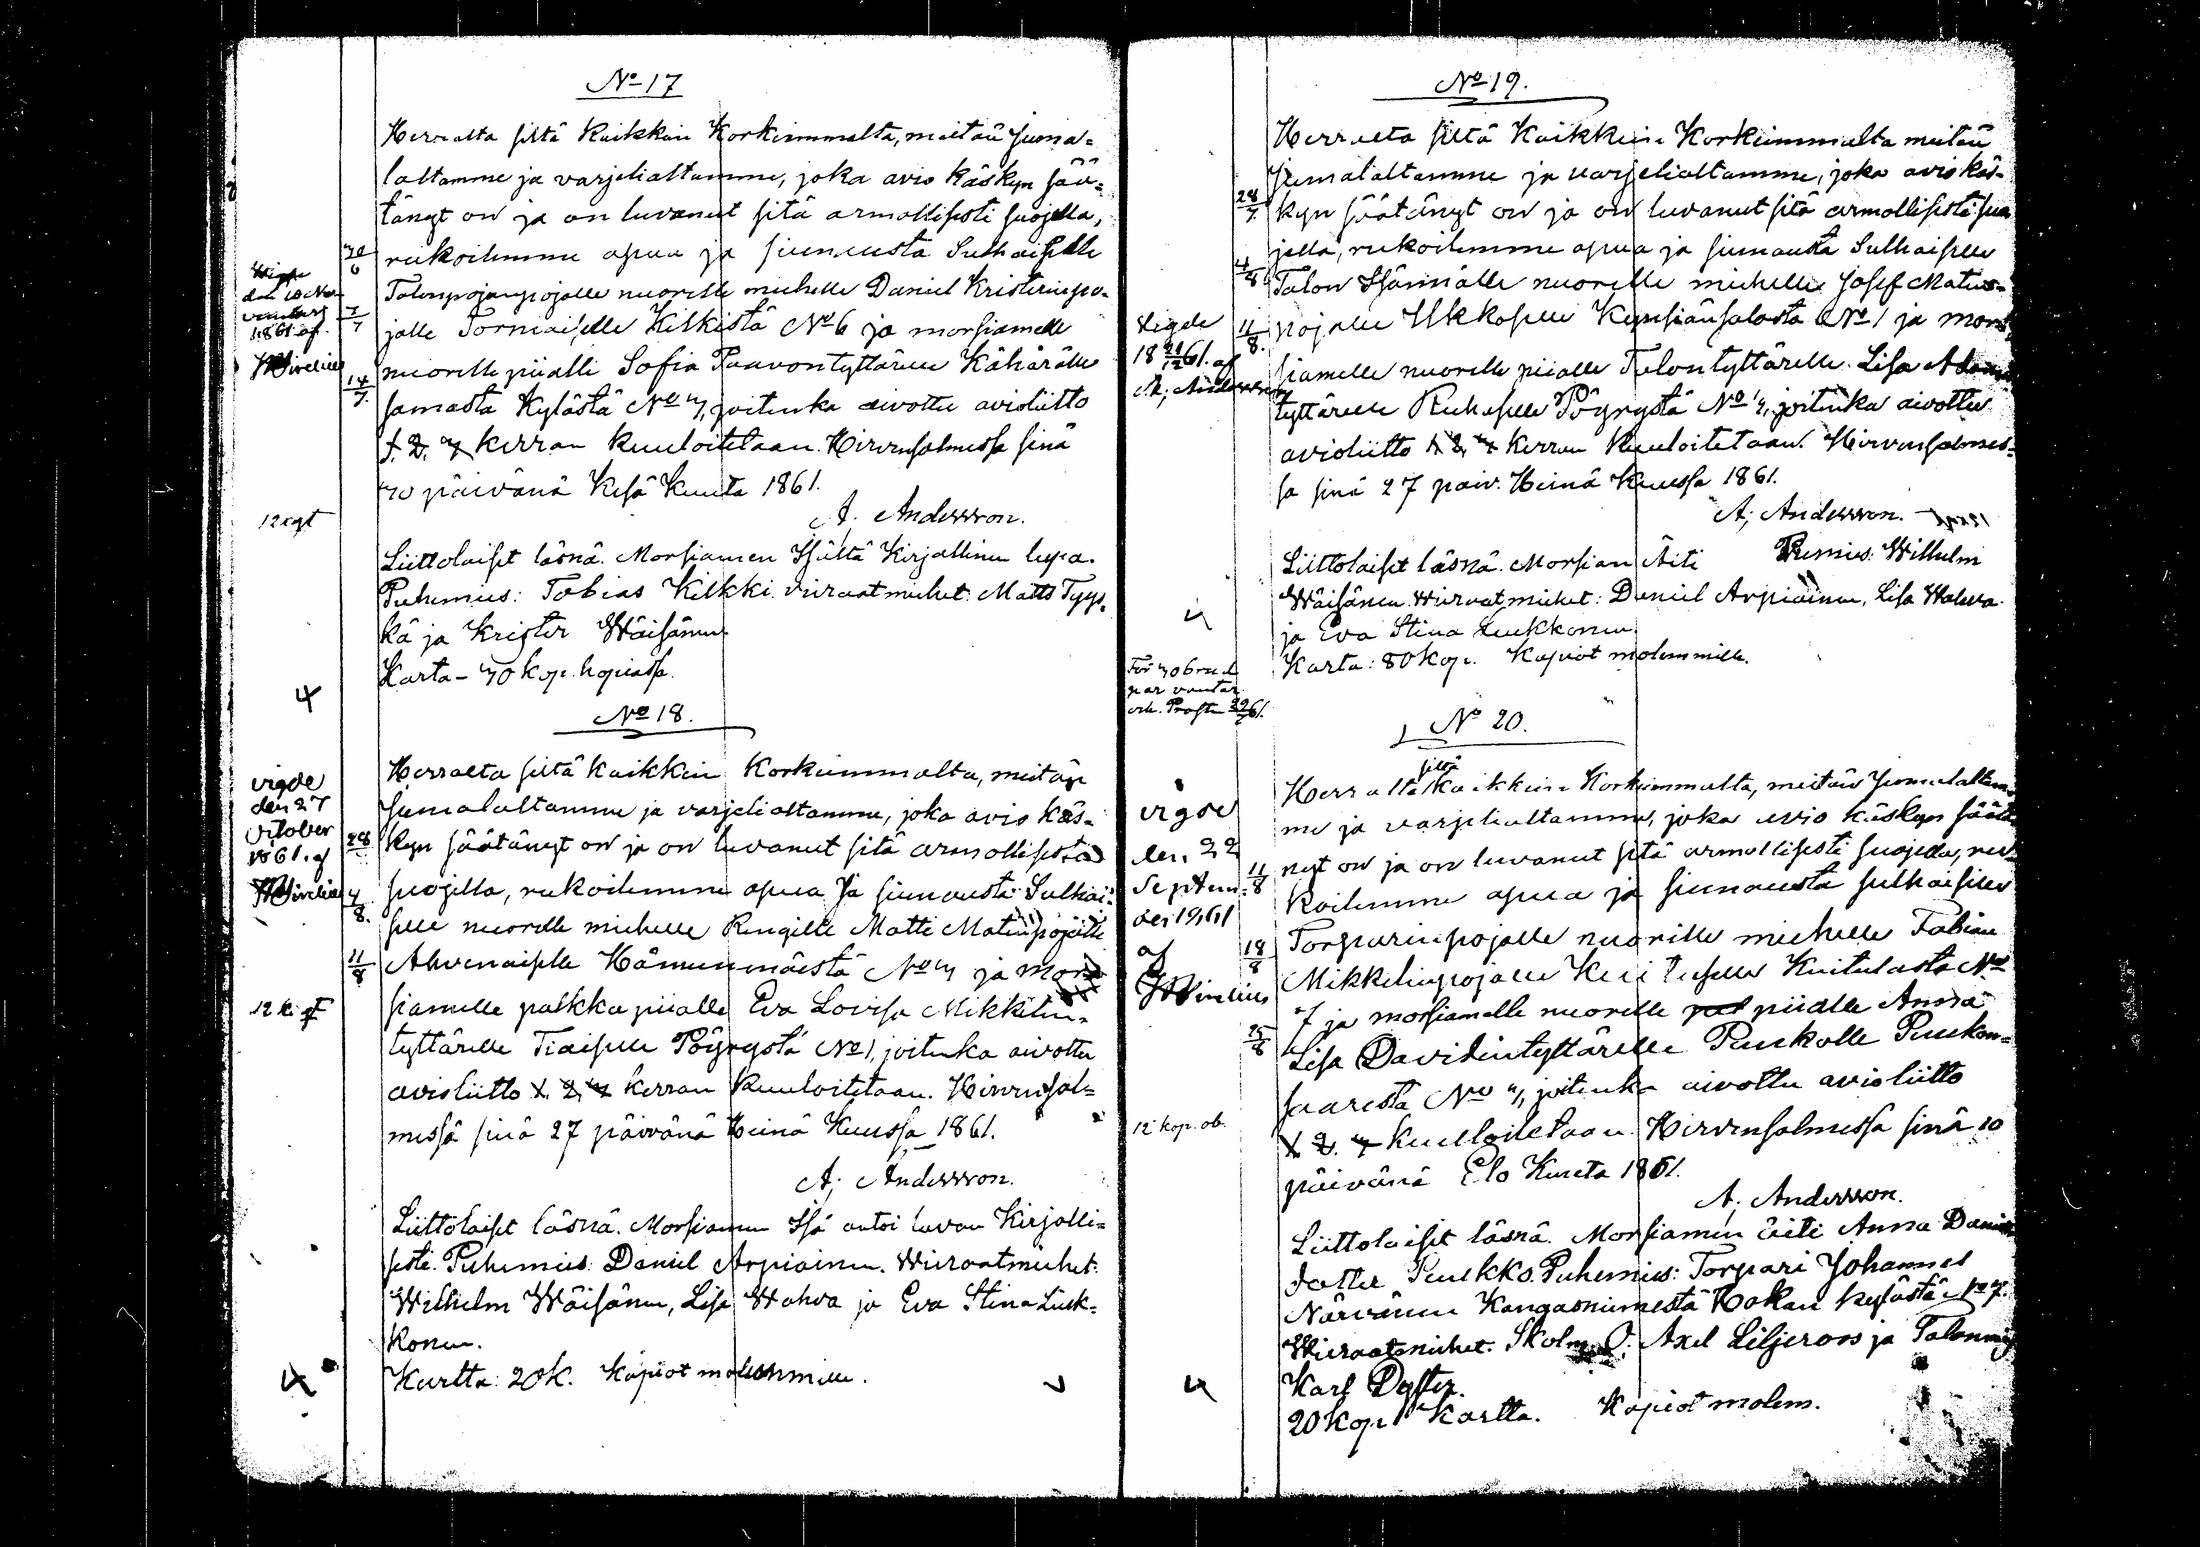 No 17
Herralta siltä Kaikkein Korkeimmalta, meitän Juma-
laltamme ja varjelialtamme, joka avio käskyn sää-
tänyt on ja on luvanut sitä armollisesti suojella,
30/6
rukoilemme apua ja siunausta Sulhaiselle
Wigde
den 10 No-
vember
1861 af
WSirelius
7/7
14/7
Talonpojanpojalle nuorelle miehelle Daniel Kristerinpo-
jalle Torniaiselle Kilkistä No 6 ja morsiamelle
nuorelle piialle Sofia Paavontyttärelle Kähärälle
samasta Kylästä No 7, joitenka aivottu avioliitto
1. 2. 3 kerran kuuloitetaan. Hirvensalmessa sinä
30 päivänä Kesä Kuuta 1861.
A; Andersson.
12 kgt
Liittolaiset läsnä. Morsiamen Isältä Kirjallinen lupa.
Puhemies: Tobias Kilkki. vieraat miehet: Matts Tyys-
kä ja Krister Wäisänen
Karta - 30 kop. hopiassa.
4
No 18.
Herralta siltä kaikkein Korkeimmalta, meitän
vigde
den 27
October
1861. af
WSirelius
28/7
4/8.
11/8
Jumalaltamme ja varjelialtamme, joka avio käs-
kyn säätänyt on ja on luvanut sitä armollisesta
suojella, rukoilemme apua Ja siunausta Sulhai-
selle nuorelle miehelle Rengille Matte Matinpojalle
Ahvenaiselle Hämeenmäestä No 3 ja mor-
siamelle palkka piialle Eva Lovisa Mikkelin-
12 k. gt
tyttärelle Tiaiselle Pöyrystä No 1, joitenka aivottu
avioliitto 1. 2. 3 kerran kuuloitetaan. Hirvensal-
messä sinä 27 päivänä Heinä Kuussa 1861.
A; Andersson.
Liittolaiset läsnä. Morsiamen Isä antoi luvan Kirjalli-
sesti. Puhemies: Daniel Arpiainen. Wieraatmiehet:
Wilhelm Wäisänen, Lisa Wahva ja Eva Stina Liuk-
konen.
Kartta: 20 k. Kopiot molemmille.
4
No 19.
Herralta siltä Kaikkein Korkeimmalta meitän
Jumalaltamme ja varjelialtamme, joka avio käs-
28/7
kyn säätänyt on ja on luvanut sitä armollisesti suo
jella, rukoilemme apua ja siunausta Sulhaiselle
4/8
Talon Isännälle nuorelle miehelle Josef Matin-
Vigde
18 21/12 61. af
A; Andersson
11/8.
pojalle Ukkoselle Kynsiänsalosta No 1 ja mor-
siamelle nuorelle piialle Talontyttärelle Lisa Adamin
tyttärelle Ruhaselle Pöyrystä No 3, joitenka aivottu
avioliitto 1 2. 3 kerran kuuloitetaan. Hirvensalmes-
sa sinä 27 päiv. Heinä Kuussa 1861.
A; Andersson.
Liittolaiset läsnä. Morsian Äiti Puemies: Wilhelm
Wäisänen. Wieraat miehet: Daniel Arpiainen, Lisa Wahva
4
ja Eva Stina Liukkonen.
Karta: 80 kop. Kopiot molemmille.
No 20.
siltä
Herralta kaikkein Korkeimmalta, meitän Jumalaltam-
me ja varjelialtamme, joka avio käskyn säätä
vigde
den 22
Septem-
ber 1861
af
WSirelius
11/8
18/8
25/8
nyt on ja on luvanut sitä armollisesti suojella, ru-
koilemme apua ja siunausta sulhaiselle
Torparinpojalle nuorille miehelle Fabian
Mikkelinpojalle Kuituselle Kuitulasta No
7 ja morsiamelle nuorelle piialle Anna
Lisa Davidintyttärelle Puukolle Puukon-
saaresta No 3, joitenka aivottu avioliitto
12 kop. ob.
1. 2. 3 kuuloitetaan Hirvensalmessa sinä 10
päivänä Elo Kuuta 1861.
A; Andersson.
Liittolaiset läsnä. Morsiamen äiti Anna Daniels
dotter Puukko. Puhemies: Torpari Johannes
Närvänen Kangasniemestä Hokan kylästä No 7.
Wieraatmiehet. Skolm. O; Axel Liljeroos ja Talonmies
Karl Dyster.
4
20 kop. Kartta. Kopiot molem.